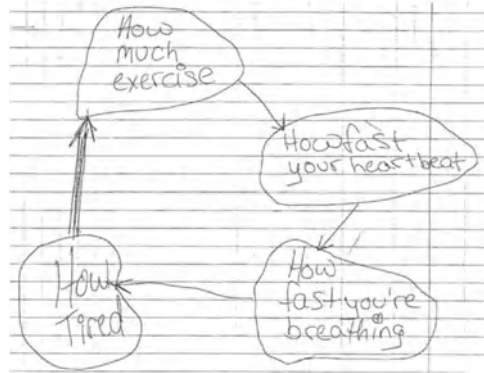 How
much
exercise
How fast
your heartbeat
How
fast you're
breathing
How
Tired